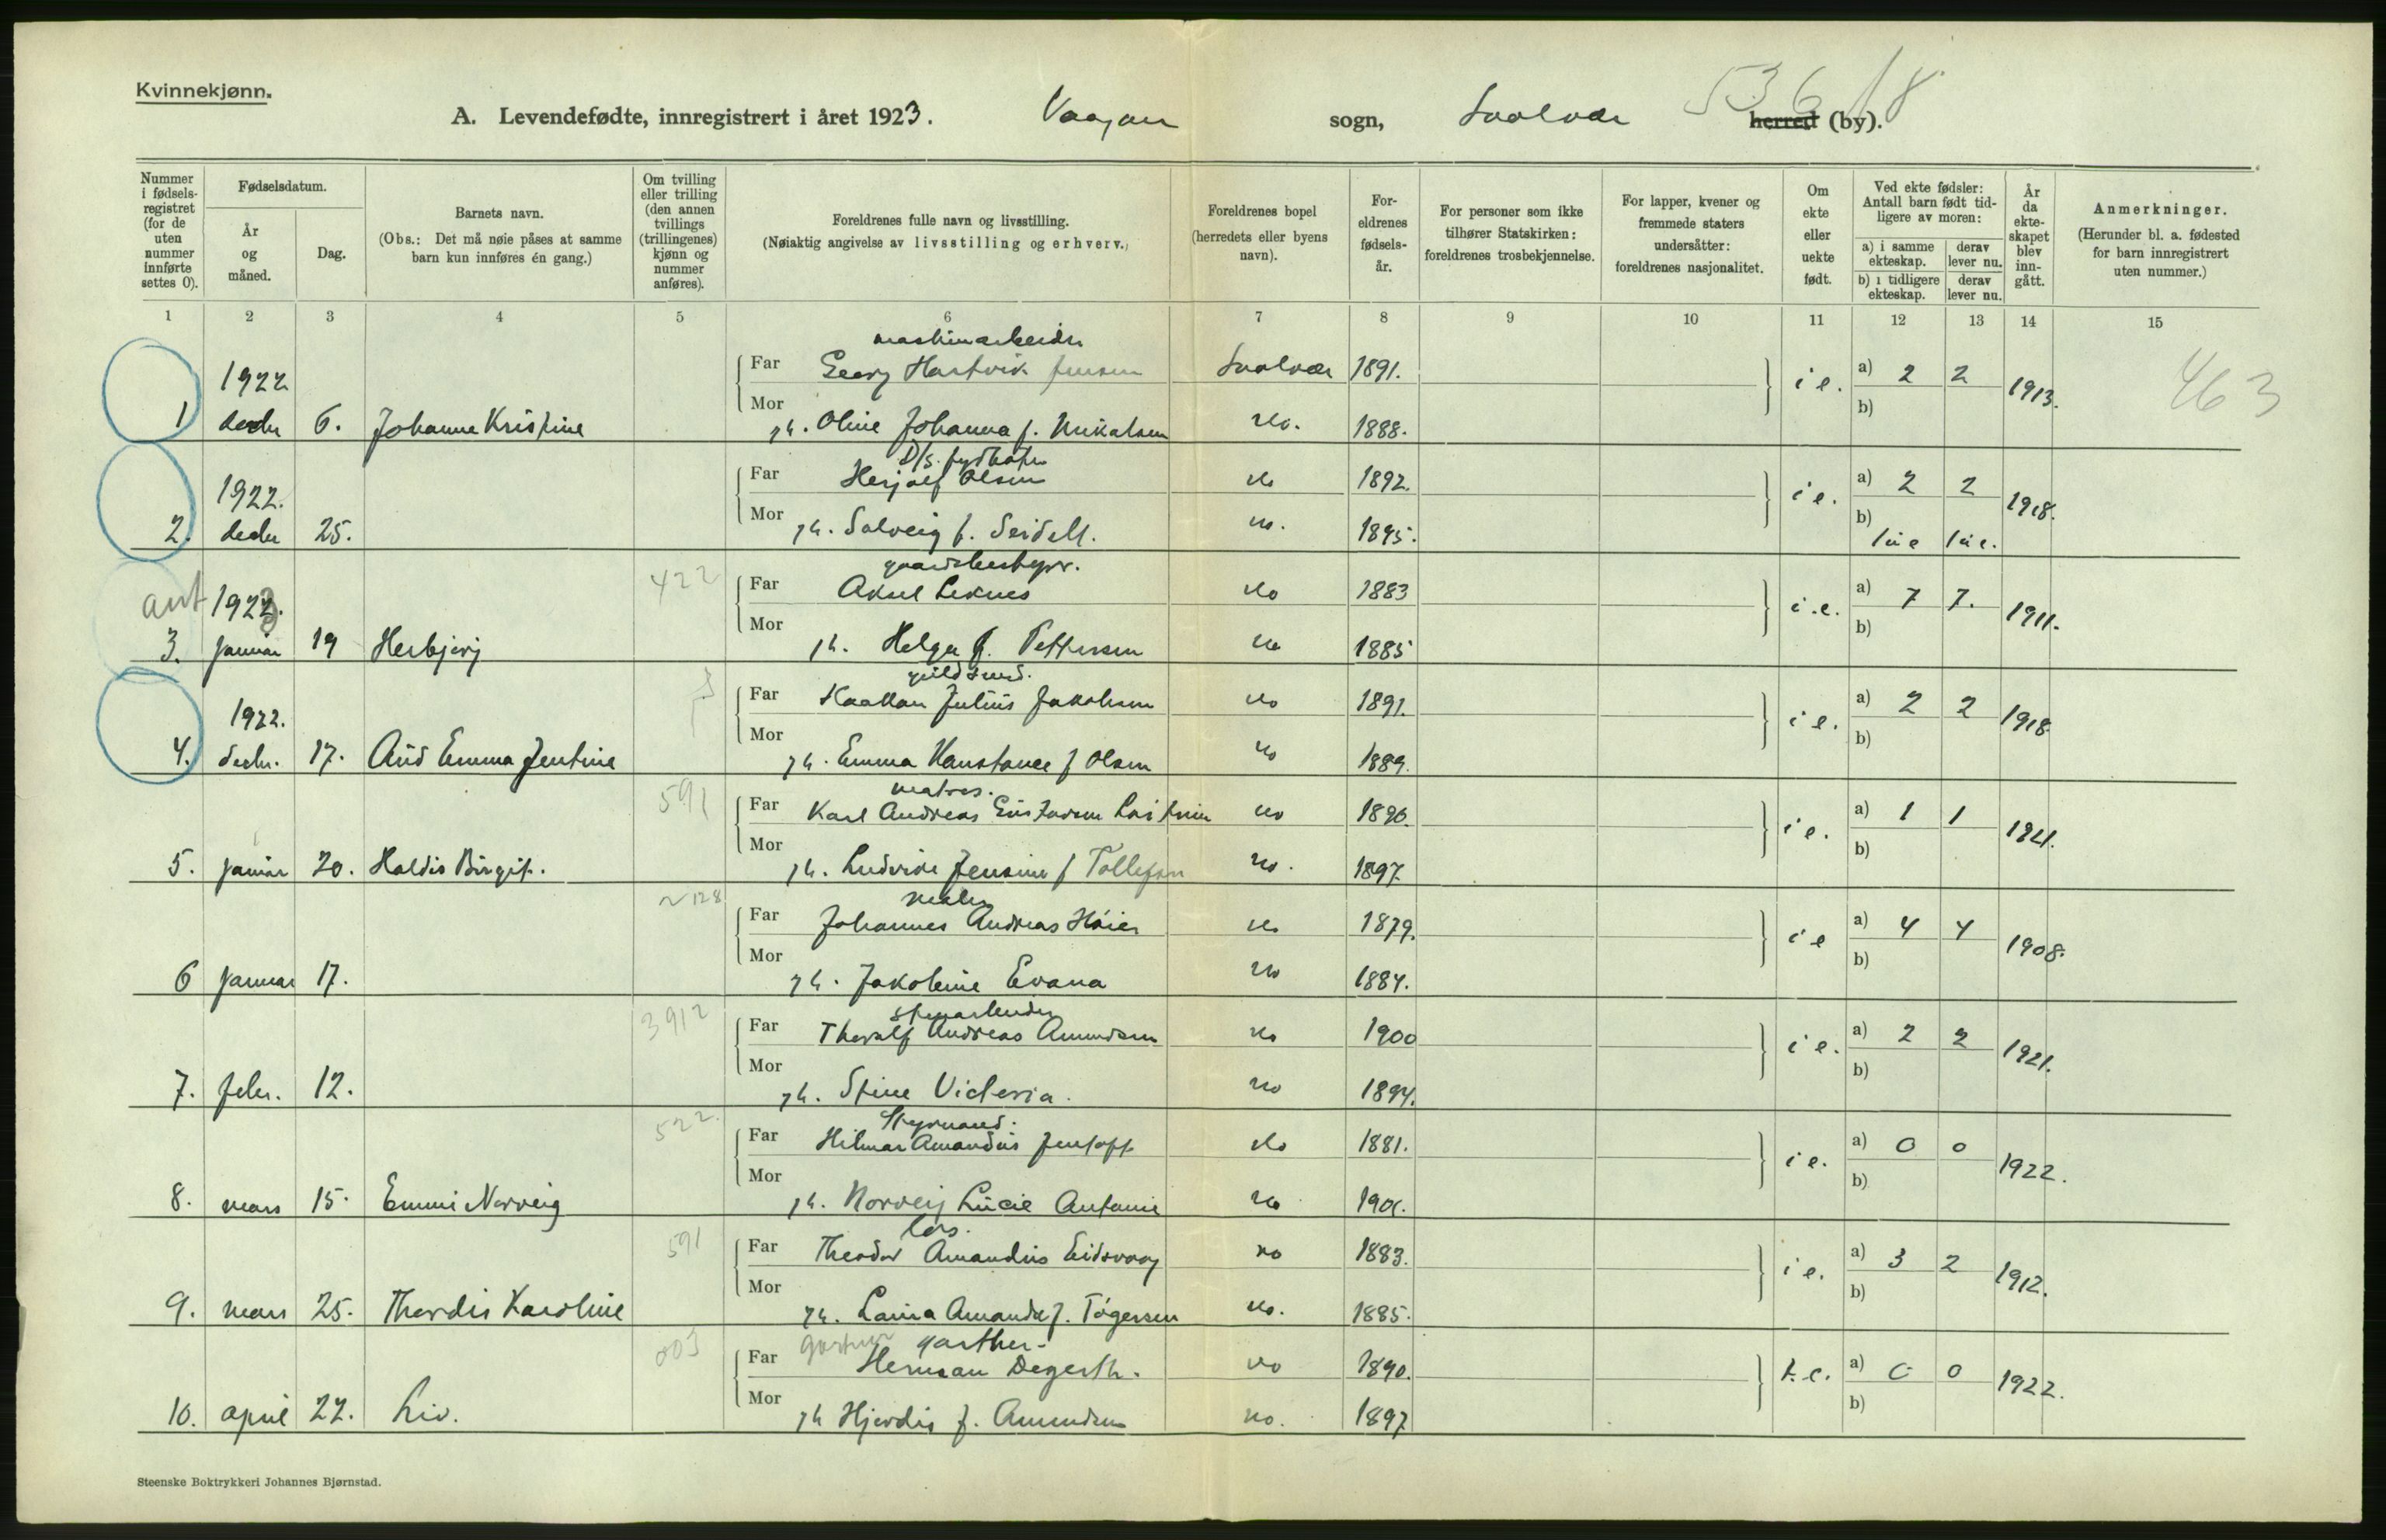 Kvinnekjønn.
A. Levendefødte, innregistrert i året 1923. Vaagan sogn, Svolvær herred (by). 536 18
Nummer i fødselsregistret (for de uten nummer innførte settes 0).
Fødselsdatum.
År og måned.
Dag.
Barnets navn.
(Obs.: Det må nøie påses at samme barn kun innføres én gang.)
Om tvilling eller trilling (den annen tvillings (trillingenes) kjønn og nummer anføres).
Foreldrenes fulle navn og livsstilling.
(Nøiaktig angivelse av livsstilling og erhverv.)
Foreldrenes bopel (herredets eller byens navn).
Foreldrenes fødselsår.
For personer som ikke tilhører Statskirken: foreldrenes trosbekjennelse.
For lapper, kvener og fremmede staters undersåtter: foreldrenes nasjonalitet.
Om ekte eller uekte født.
Ved ekte fødsler: Antall barn født tidligere av moren:
a) i samme ekteskap. derav lever nu.
b) i tidligere ekteskap. derav lever nu.
År da ekteskapet blev inngått.
Anmerkninger.
(Herunder bl. a. fødested for barn innregistrert uten nummer.)
1 2 3 4 5 6 7 8 9 10 11 12 13 14 15
maskinarbeider
1922 Far Georg Hartvik Jensen Svolvær 1891. i e. a) 2 2 1913. 463
1 decbr 6. Johanne Kristine Mor Oline Johanna f. Mikalsen do. 1888. b)
D/s. fyrbøter
1922. Far Herjolf Olsen do 1892. i e. a) 2 2 1918.
2. decbr 25. Mor Solveig f. Seidell. do. 1895. b) 1 u e 1 u e.
gaardsbestyr.
ant 1923. 422 Far Aksel Leknes do 1883 i.e. a) 7 7. 1911.
3. januar 19 Herbjørg Mor Helga f. Pettersen do 1885 b)
guldsmed.
1922. Far Haakon Julius Jakobsen do 1891. i e. a) 2 2 1918
4. decbr. 17. Aud Emma Jentine Mor Emma Konstance f Olsen do 1889. b)
matros.
591 Far Karl Andreas Gustavsen do 1890. i e. a) 1 1 1921.
5. januar 20. Haldis Birgit. Mor Ludvike Jensine f Tollefsen do. 1897 b)
maler
128 Far Johannes Andreas Høier do 1879. i e a) 4 4 1908.
6 januar 17. Mor Jakobine Evana do 1884. b)
stenarbeider
3912 Far Thoralf Andreas Amundsen do 1900 i e. a) 2 2 1921.
7. febr. 12. Mor Stine Victoria. do 1894. b)
Styrmand.
522. Far Hilmar Amandus Jentoft do 1881. i e. a) 0 0 1922.
8. mars 15. Emmi Norveig Mor Norveig Lucie Antonie do 1901. b)
los.
591 Far Theodor Amandus Eidsvaag do 1883. i e. a) 3 2 1912.
9. mars 25. Thordis Karoline Mor Laura Amanda f. Tøgersen do. 1885. b)
gartner gartner.
003 Far Herman Degerth. do 1890. i.e. a) 0 0 1922.
10. april 22. Liv. Mor Hjørdis f. Amundsen do. 1897 b)
Steenske Boktrykkeri Johannes Bjørnstad.